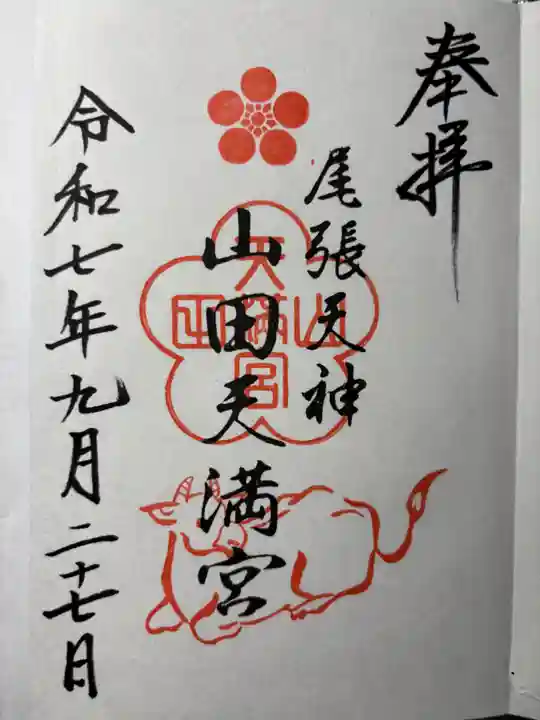 奉拝
尾張天神
山田天満宮
山田天満宮
令和七年九月二十七日